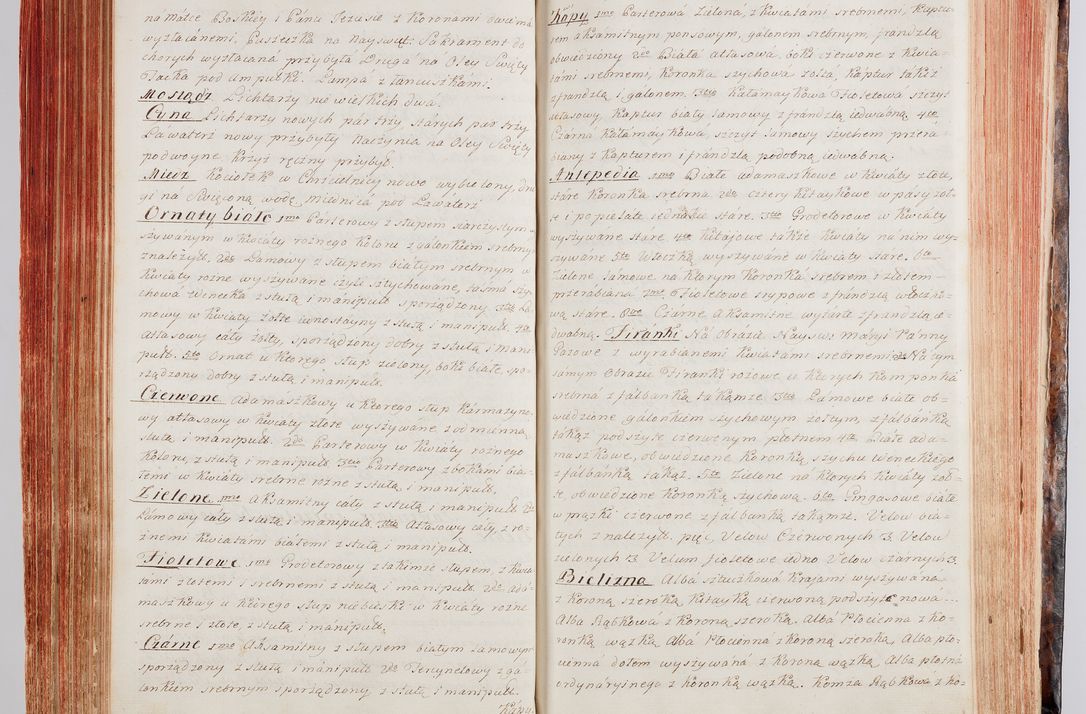 na Matce Boskiey i Panu Jezusie z Koronami dwiema
wyzłacanemi, Puszeczka na Nayswięt: Sakrament do
chorych wyzłacana przybyła Druga na Oley Swięty
Tacka pod ampułki. Lampa z Łancuszkami.
Mosiądz Lichtarzy nie wielkich dwa.
Cyna Lichtarzy nowych par trzy, starych par trzy
Lawaterz nowy przybyły Naczynia na Oley Swięty
podwoyne Krzyż ręczny przybył.
Miedz Kociołek w Chrzcielnicy nowo wybielony, dru
gi na Swięconą wodę, miednica pod Lawaterz
Ornaty białe 1mo Parterowy z słupem
szywanym w kwiaty rożnego koloru z galonkiem srebrny
znalezył. 2do Lamowy z słupem białym srebrnym w
kwiaty rożne wyszywane czyli sztychowane, tasma szy
chowa Wenecka z stułą i manipuł: sporządzony 3tio La
mowy w kwiaty żołte z stułą i manipuł. 4to
Atłasowy cały żołty, sporządzony dobry z stułą i mani
puł. 5to Ornat u ktorego słup zielony, boki białe spo
rządzony dobry z stułą i manipuł.
Czerwone Adamaszkowy u ktorego słup karmazyno
wy atłasowy w kwiaty złote wyszywane z odmienną
stułą i manipuł. 2do Parterowy w kwiaty rożnego
koloru, z stułą i manipuł. 3tio Parterowy z bokami bia
łemi w kwiaty srebrne rżne z stułą i manipuł.
Zielone 1mo Aksamitny cały z stułą i manipuł 2do
Lamowy cały z stułą i manipuł. 3tio Atłasowy cały z ro
żnemi kwiatami białemi z stułą i manipuł.
Fioletowe 1mo Grodetorowy z takimże słupem z kwia
tami złotemi i srebrnemi z stułą i manipuł. 2do ada
maszkowy u ktorego słup niebieski w kwiaty rożne
srebrne i złote, z stułą i manipułą,
Czárne 1mo Aksamitny z słupem białym lamowym
sporządzony z stułą i manipuł 2do Tercynelowy z ga
lonkiem srebrnym sporządzony z stułą i manipuł.
Kapy
Kapy 1mo Parterowa Zielona, z kwiatami srebrnemi, kaptu
rem aksamitnym ponsowym, galonem srebrnym, frandzlą
obwiedziony 2do Biała atłasowa boki czerwone z kwia
tami srebrnemi, koronka szychowa żołta, kaptur także
z frandzlą i galonem. 3tio Kałamaykowa Fioletowa szczyt
atłasowy, kaptur biały lamowy z frandzlą jedwabną, 4to
Czarna Kałamaykowa, szczyt lamowy szychem przera
biany z Kapturem i frandzlą podobną jedwabną.
Antepedia 1mo Białe adamaszkowe w kwiaty złote,
stáre Koronka srebrna 2do cztery kitaykowe w pasy żoł=
te i popielate jednakie stáre. 3tio Grodetorowe w kwiaty
wyszywáne stáre 4to Kitajowe także kwiaty na nim wy
szywáne 5to wyszywáne w kwiaty stáre. 6to
Zielone lamowe na ktorym koronka srebrem i złotem
przerabiána 7mo Fioletowe trypowe z frandzlą włoczko=
wą stáre. 8vo Czarne Aksamitne wytarte z frandzlą je=
dwabną. Firánki Na obraza Nayswię: Maryi Panny
Gazowe z wyrabianemi kwiatami srebrnemi 2do Na tym
samym Obrazie Firanki rożowe u ktorych kamponka
srebrna z falbanką takąmże 3tio Lamowe białe ob=
wiedzione galonkiem szychowym żołtym, z falbanką
takąż podszyte czerwonym płotnem 4to Białe ada=
maszkowe, obwiedzione koronką szychu weneckiego
z falbanką takąż. 5to Zielone na ktorych kwiaty żoł=
te, obwiedzione koronką szychową. 6to Gingasowe białe
w prążki czerwone z falbanką takąmże. Velow bia=
łych z należyt. pięć, Velow Czerwonych 3. Velow
zielonych 3. Velum fioletowe jedno Velow czárnych 3.
Bielizna Alba sztuczkowa Krajami wyszywána
z koroną szeroką kitayką czerwoną podszyte nowa
Alba Rąbkowa z koroną szeroką. Alba Płocienna z ko=
ronką wązką Alba Płocienna z koroną szeroką, Alba pło=
cienna dołem wyszywána z koroną wązką. Alba płotna
ordynaryinego z koronką wązką. Komza Rąbkowa z ko=